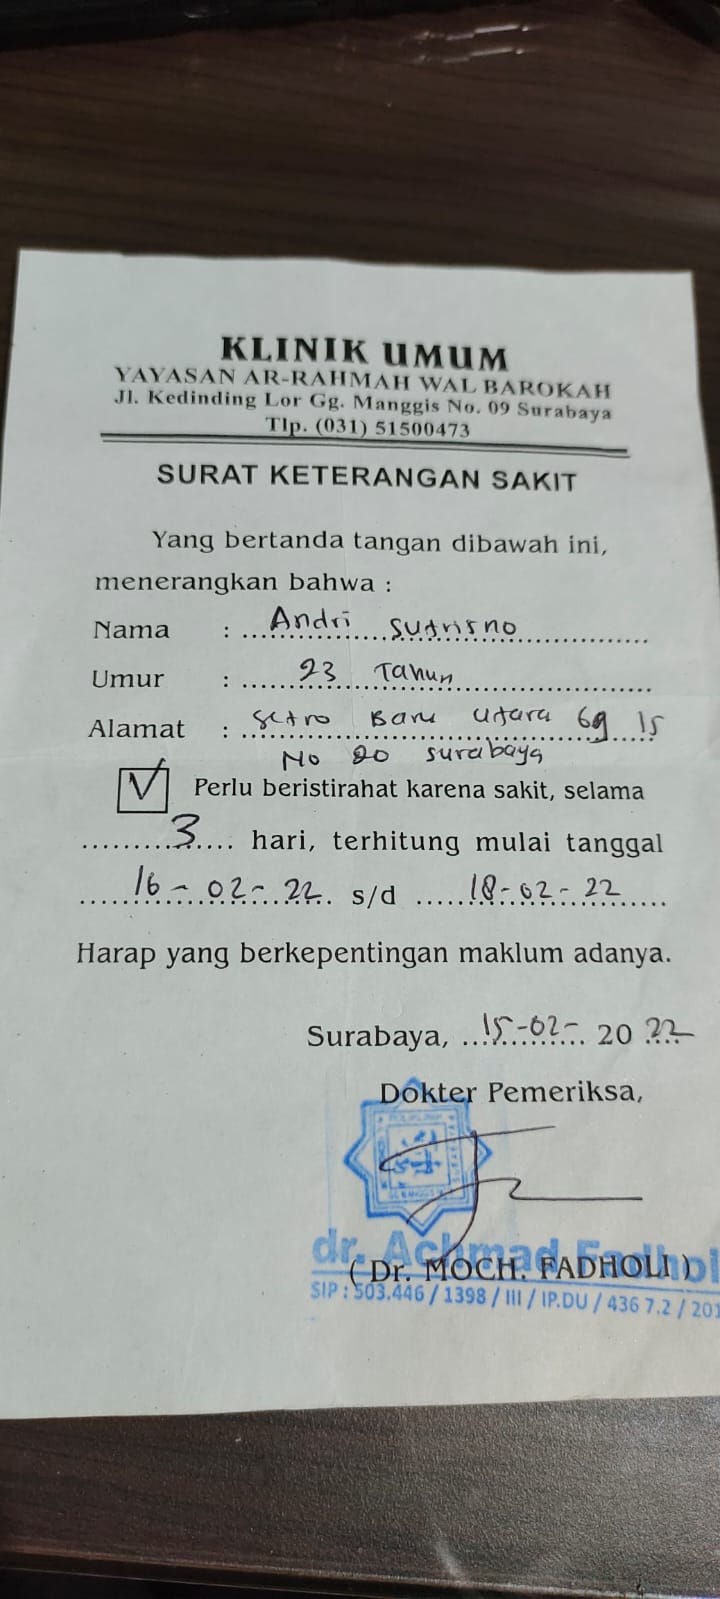 KLINIK UMUM
YAYASAN AR-RAHMAH WAL BAROKAH
Jl. Kedinding Lor Gg. Manggis No. 09 Surabaya
Tlp. (031) 51500473
SURAT KETERANGAN SAKIT
Yang bertanda tangan dibawah ini,
menerangkan bahwa :
Nama : Andri Sutrisno
Umur : 23 Tahun
Alamat : Setro Baru Utara Gg 15
No 20 Surabaya
Perlu beristirahat karena sakit, selama
3 hari, terhitung mulai tanggal
16-02-22 s/d 18-02-22
Harap yang berkepentingan maklum adanya.
Surabaya, 15-02- 2022
Dokter Pemeriksa,
dr. Achmad Fadhol
( Dr. MOCH. FADHOLI )
SIP : 503.446 / 1398 / III / IP.DU / 436 7.2 / 201